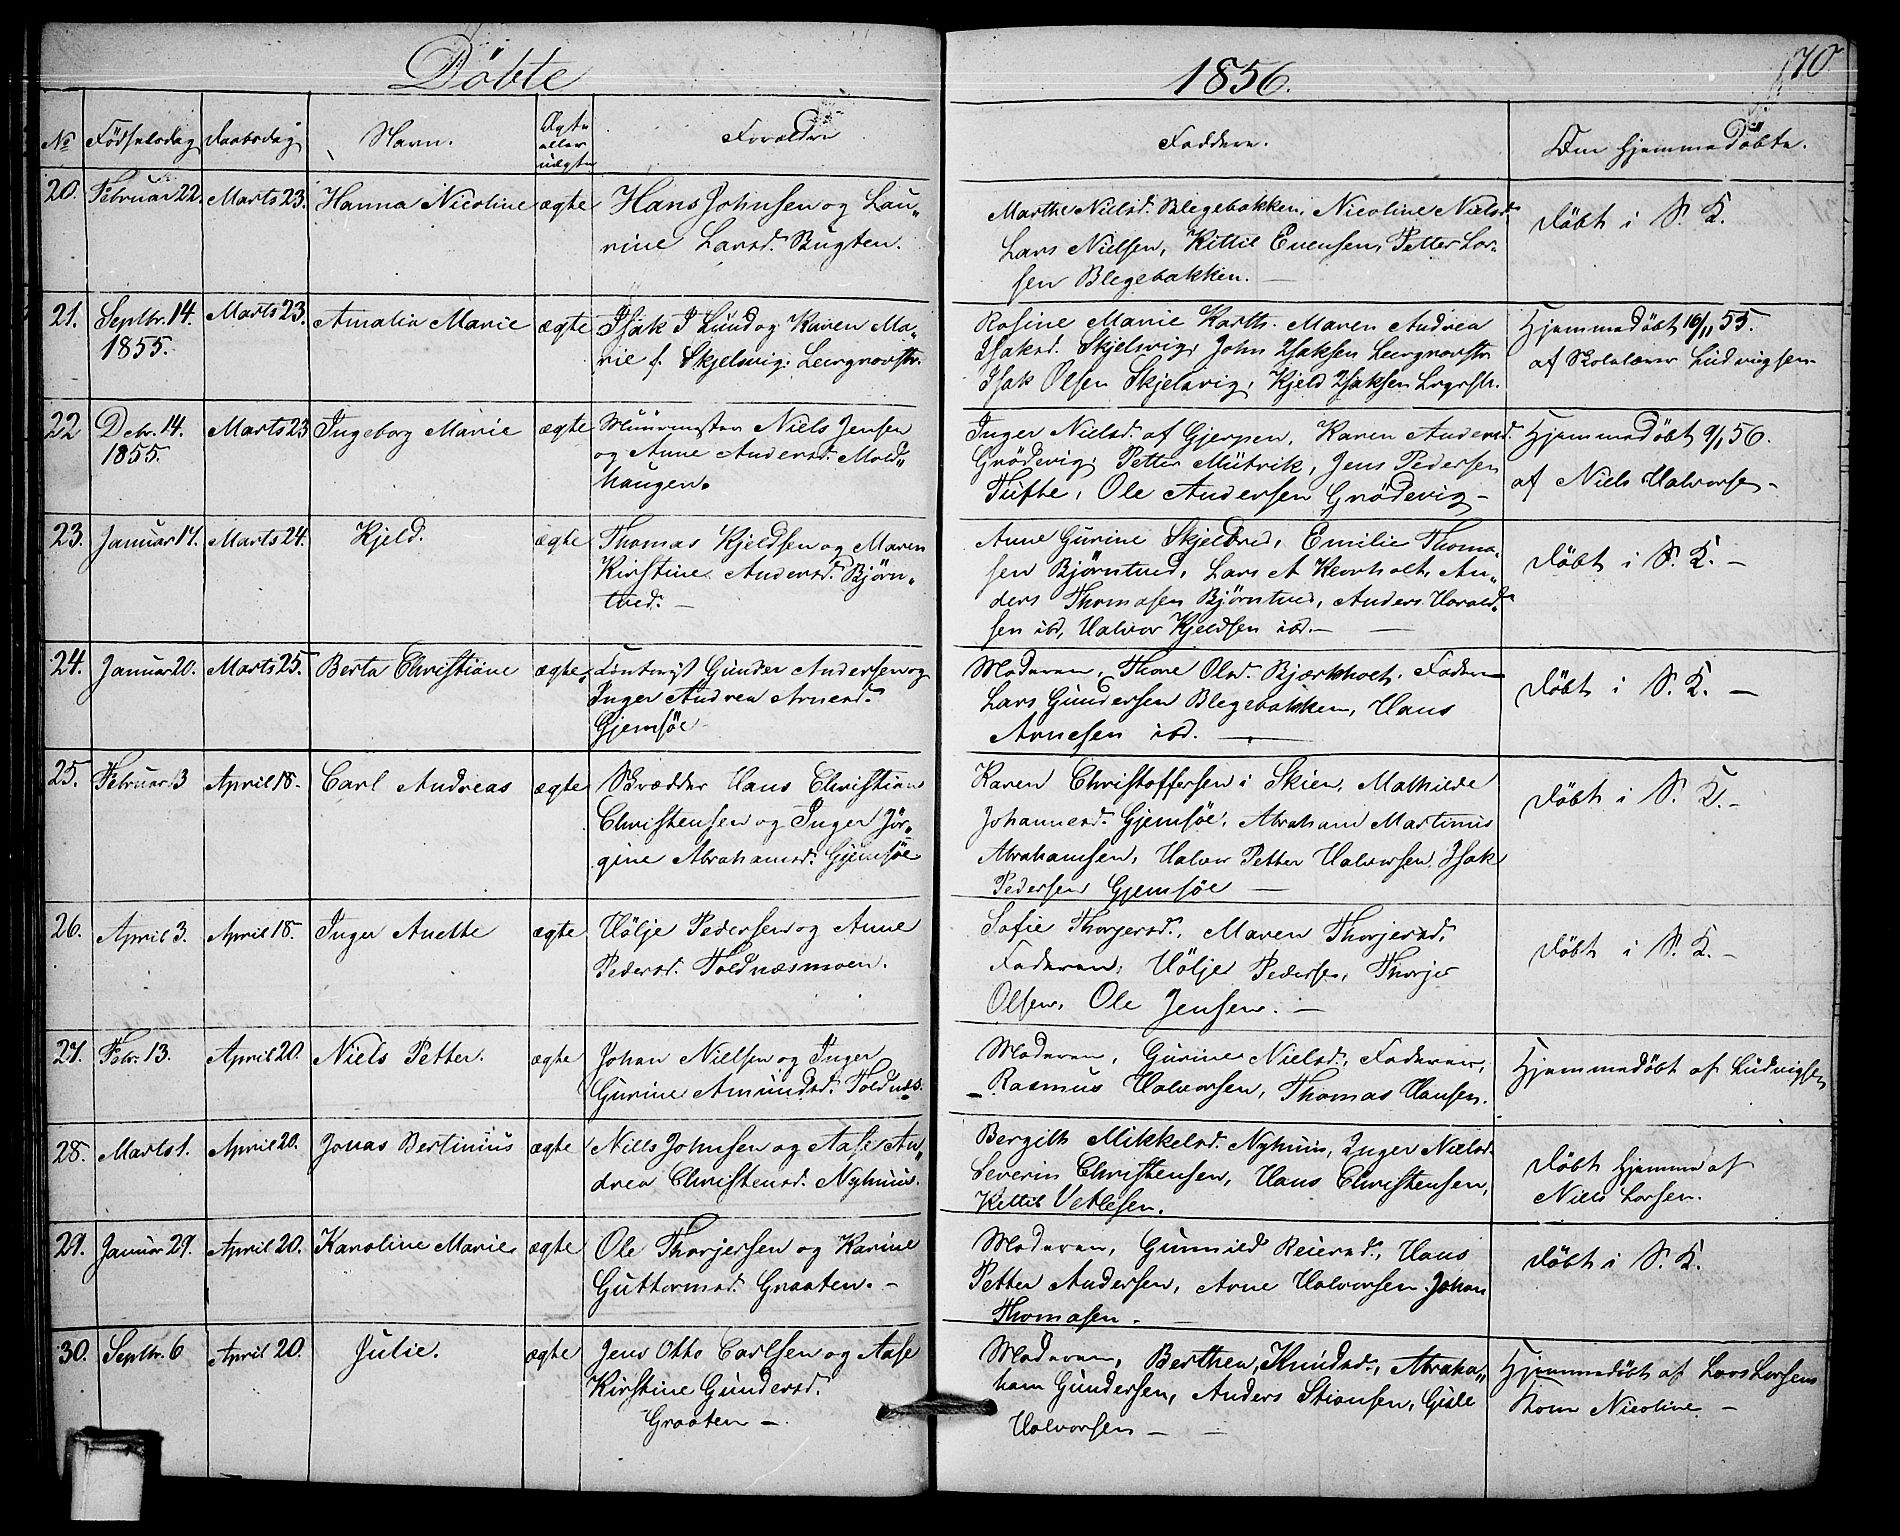 Döbte
1856.
70
No Födselsdag Daabsdag Navn. Ægte eller uægte Forældre Faddere. Om hjemmedöbte.
20. Februar 22. Marts 23. Hanna Nicoline ægte Hans Johnsen og Lau„
rine Larsd. Bugten.
Marthe Nielsd. Blegebakken, Nicoline Nielsd.
Lars Nielsen, Kittil Evensen, Petter Lar-
sen Blegebakken. —
Döbt i S. K.
21. Septbr. 14. 1855. Marts 23. Amalia Marie ægte Isak I Lund og Karen Ma„
rie f. Skjelsvig,
Rosine Marie Maren Andrea
Isaksd. Skjelsvig, John Isaksen
Isak Olsen Skjelsvig, Kjeld Isaksen
Hjemmedöbt 16/11 55.
af Skolelærer Ludvigsen
22 Debr. 14. 1855. Marts 23 Ingeborg Marie ægte Muurmester Niels Jensen
og Anne Andersd. Mold„
haugen.
Inger Nielsd. af Gjerpen, Karen Andersd.
Grödevig, Petter Jens Pedersen
Tufte, Ole Andersen Grödevig —
Hjemmedöbt 9/1 56.
af Niels Halvorsen —
23. Januar 17. Marts 24. Kjeld. ægte Thomas Kjeldsen og Maren
Kirstine Andersd. Bjørn„
tved. —
Anne Gurine Skjelbred, Emilie Thoma-
sen Bjørntved, Lars A An„
ders Thomasen Bjørntved, Anders Harald„
sen ibd, Halvor Kjeldsen ibd. —
Döbt i S. K. —
24. Januar 20. Marts 25. Berta Christiane ægte Gunder Andersen og
Inger Andrea Arnesd.
Gjemsöe
Moderen, Thore Olsd. Bjærkholt, Faderen
Lars Gundersen Blegebakken, Hans
Arnesen ibd. —
Döbt i S. K. —
25. Februar 3 April 18. Carl Andreas ægte Skrædder Hans Christian
Christensen og Inger Jör„
gine Abrahamsd. Gjemsöe
Karen Christoffersen i Skien, Mathilde
Johannesd. Gjemsöe, Abraham Martinus
Abrahamsen, Halvor Petter Halvorsen, Isak
Pedersen Gjemsöe —
Döbt i S. K. —
26. April 3. April 18. Inger Anette ægte Hölje Pedersen og Anne
Pedersd. Toldnæsmoen.
Sofie Thorjersd., Maren Thorjersd,
Faderen, Hölje Pedersen, Thorjer
Olsen, Ole Jensen. —
Döbt i S. K. —
27. Febr. 13. April 20. Niels Petter. ægte Johan Nielsen og Inger
Gurine Amundsd. Toldnæs.
Moderen, Gurine Nielsd., Faderen,
Rasmus Halvorsen, Thomas Hansen.
Hjemmedöbt af Ludvigsen
28. Marts 1. April 20. Jonas Bertinius ægte Niels Johnsen og Aase An„
drea Christensd. Nyhuus.
Bergith Mikkelsd. Nyhuus, Inger Nielsd.
Severin Christensen, Hans Christensen,
Kittil Vetlesen.
Döbt hjemme af
Niels Larsen.
29. Januar 29. April 20. Karoline Marie ægte Ole Thorjersen og Karine
Guttormsd. Graaten. —
Moderen, Gunnild Reiersd., Hans
Petter Andersen, Arne Halvorsen, Johan
Thomasen. —
Döbt i S. K.
30. Septbr. 6 April 20. Julie. ægte Jens Otto Carlsen og Aase
Kirstine Gundersd.
Graaten —.
Moderen, Berthea Knudsd., Abraha„
ham Gundersen, Anders Stiansen, Gisle
Halvorsen — —
Hjemmedöbt af Lars Larsens
Kone Nicoline —